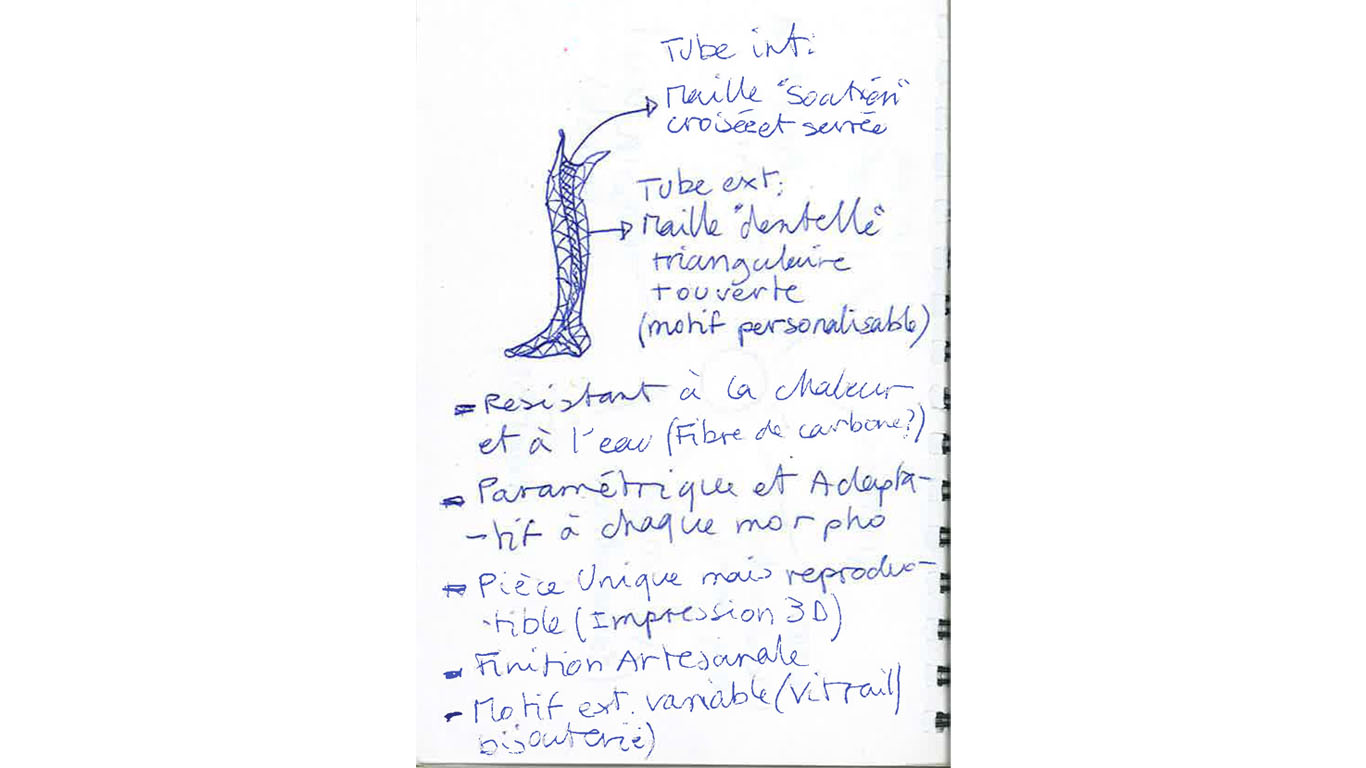 Tube int:
Maille "Soutien"
croisée et serrée
Tube ext:
Maille "dentelle"
triangulaire
+ ouverte
(motif personalisable)
- Resistant à la chaleur
et à l'eau (Fibre de carbone?)
- Paramétrique et Adapta-
-tif à chaque morpho
- Pièce Unique mais reproduc-
-tible (Impression 3D)
- Finition Artesanale
- Motif ext. variable (Vitrail/
bijouterie)